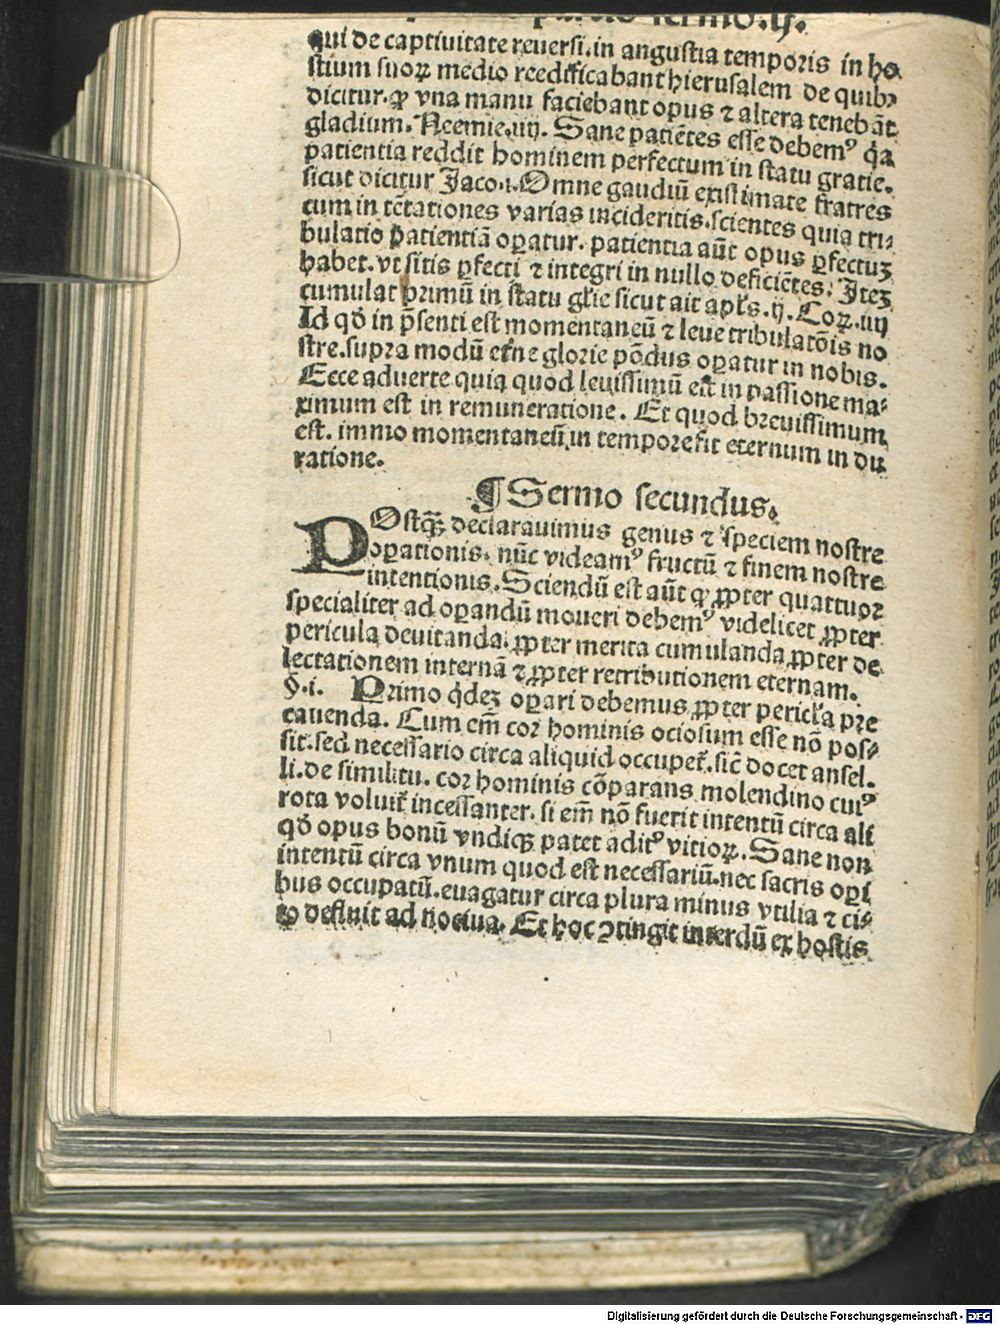 sermo.ij.
qui de captiuitate reuersi.in angustia temporis in ho
stium suoꝝ medio reedificabant hierusalem de quibꝰ
dicitur.ꝙ vna manu faciebant opus ⁊ altera tenebāt
gladium. Neemie.iiij. Sane patiētes esse debemꝰ q̇a
patientia reddit hominem perfectum in statu gratie.
sicut dicitur Jaco.i. Omne gaudiū existimate fratres
cum in tētationes varias incideritis.scientes quia tri⸗
bulatio patientiā oꝑatur. patientia aūt opus ꝑfectuꝫ
habet.vt sitis ꝑfecti ⁊ integri in nullo deficiētes. Iteꝫ
cumulat primū in statu gl̄ie sicut ait apl̄s.ij. Coꝝ.iiij
Id qđ in p̄senti est momentaneū ⁊ leue tribulatōis no
stre.supra modū et̄ne glorie pōdus oꝑatur in nobis.
Ecce aduerte quia quod leuissimū est in passione ma⸗
ximum est in remuneratione. Et quod breuissimum
est. immo momentaneū.in tempore fit eternum in du
ratione.
¶ Sermo secundus.
POstꝙ̄ declarauimus genus ⁊ speciem nostre
oꝑationis. nūc videamꝰ fructū ⁊ finem nostre
intentionis. Sciendū est aūt ꝙ ꝓpter quattuor
specialiter ad oꝑandū moueri debemꝰ videlicet ꝓpter
pericula deuitanda. ꝓpter merita cumulanda ꝓpter de
lectationem internā ⁊ ꝓpter retributionem eternam.
§.i. Primo q̇deꝫ oꝑari debemus ꝓpter pericl̄a pre
cauenda. Cum em̄ cor hominis ociosum esse nō pos⸗
sit.sed necessario circa aliquid occupet̄. sic̄ docet ansel.
li.de similitu. cor hominis cōparans molendino cuiꝰ
rota voluit̄ incessanter. si em̄ nō fuerit intentū circa ali
qđ opus bonū vndiqꝫ patet aditꝰ vitioꝝ. Sane non
intentū circa vnum quod est necessariū.nec sacris oꝑi
bus occupatū.euagatur circa plura minus vtilia ⁊ ci⸗
to defluit ad nociua. Et hoc ꝯtingit interdū ex hostis
Digitalisierung gefördert durch die Deutsche Forschungsgemeinschaft - DFG